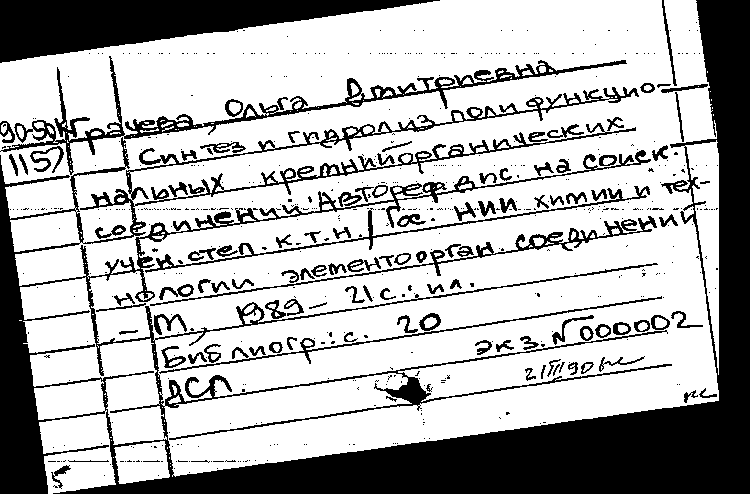 Грачева, Ольга Дмитриевна
90-50К
1157
Синтез и гидролиз полифункцио-
нальных кремнийорганических
соединений: Автореф. дис. на соиск.
учён. степ. к.т.н. / Гос. НИИ химии и тех-
нологии элементоорган. соединений
.- М., 1989 - 21 с.: ил.
Библиогр.: с. 20
ДСП. экз. №000002
21III90
5